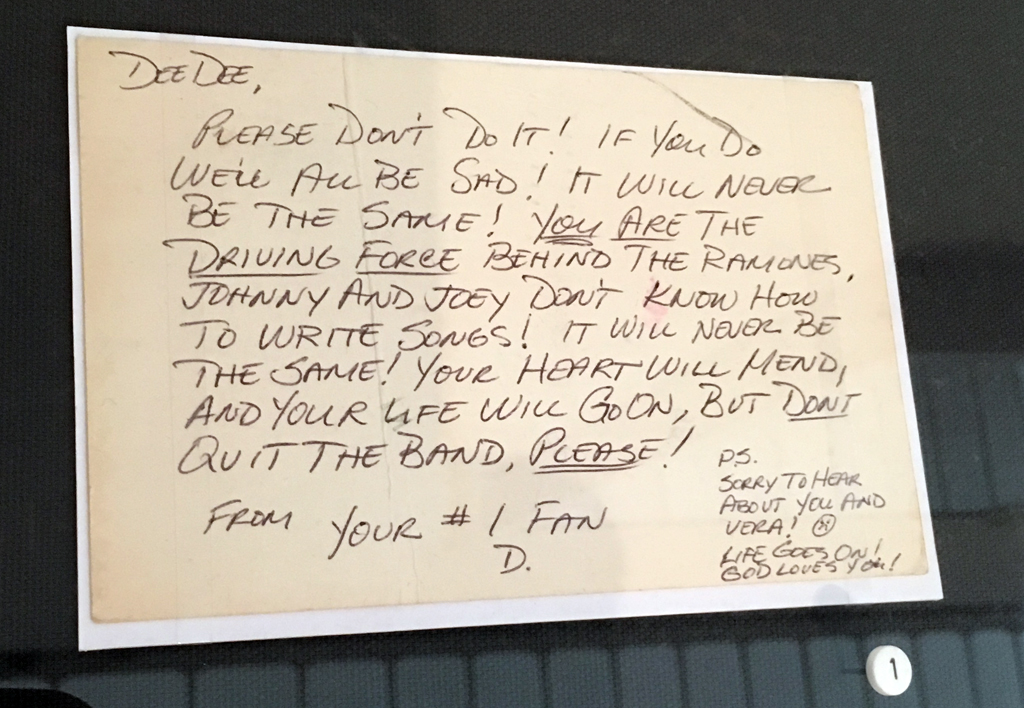 DEE DEE,
PLEASE DON'T DO IT! IF YOU DO
WE'LL ALL BE SAD! IT WILL NEVER
BE THE SAME! YOU ARE THE
DRIVING FORCE BEHIND THE RAMONES.
JOHNNY AND JOEY DON'T KNOW HOW
TO WRITE SONGS! IT WILL NEVER BE
THE SAME! YOUR HEART WILL MEND,
AND YOUR LIFE WILL GO ON, BUT DONT
QUIT THE BAND, PLEASE!
FROM YOUR #1 FAN
D.
P.S.
SORRY TO HEAR
ABOUT YOU AND
VERA! ☹
LIFE GOES ON!
GOD LOVES YOU!
1